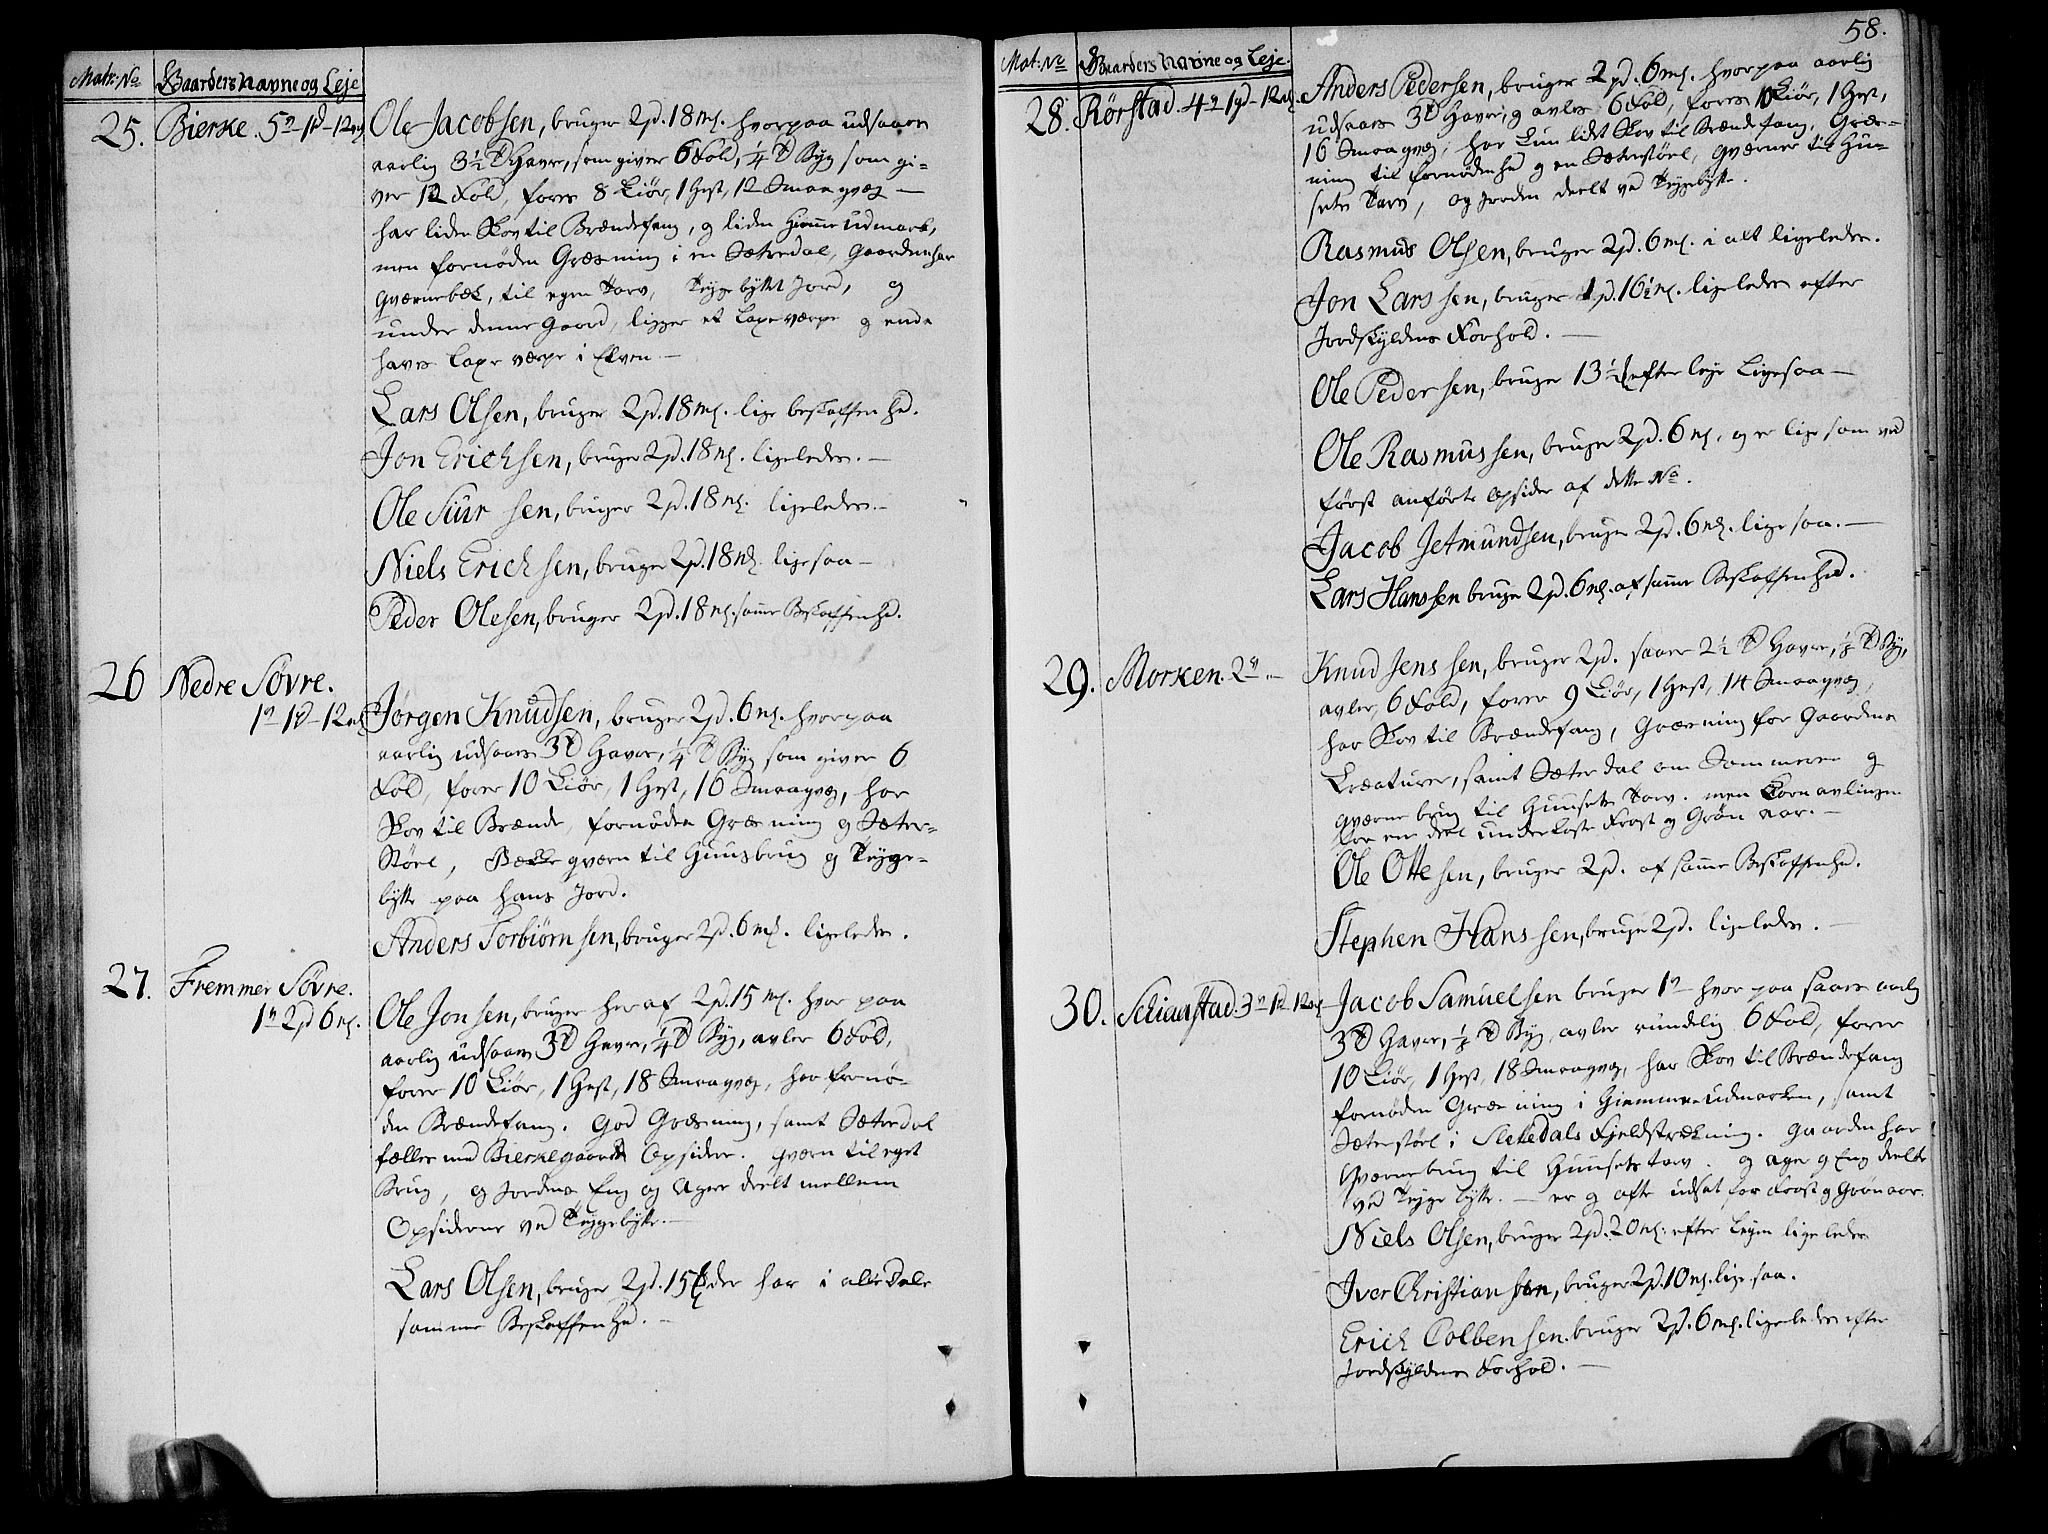 Matr: No
Gaarders navne og Leje
25.
Bierke. 5 v 1 pd 12 mk
Ole Jacobsen, bruger 2 pd. 18 mk. hvorpaa udsaaes
aarlig 3 1/2 Td Havre, som giver 6 Fold, 1/4 Td Byg som gi-
ver 12 Fold, foder 8 Kiør, 1 Hest, 12 Smaaqvæg —
har liden Skov til Brændefang, og liden hiemme udmark,
men fornøden Græsning i en Sæterdal, Gaarden har
Qværnebæk, til egen Tarv, Teyge bytte Jord, og
under denne Gaard, ligger et Laxeværpe og ende
haves Laxe værpe i Elven. —
Lars Olsen, bruger 2 pd. 18 mk. lige beskaffenhed.
Jon Erichsen, bruger 2 pd. 18 mk. ligeledes. —
Ole Siur sen, bruger 2 pd. 18 mk. ligeledes. —
Niels Erichsen, bruger 2 pd. 18 mk. ligesaa —
Peder Olesen, bruger 2 pd. 18 mk. samme Beskaffenhed.
26
Nedre Søvre.
1 v 1 pd 12 mk
Jørgen Knudsen, bruger 2 pd. 6 mk. hvorpaa
aarlig udsaaes 3 Td Havre, 1/4 Td Byg som giver 6
Fold, foder 10 Kiør, 1 Hest, 16 Smaaqvæg, har
Skov til Brænde, fornøden Græsning og Sæter-
Støel, Bække qværn til Huusbrug og Teyge-
bytte paa hans Jord.
Anders Torbiørnsen, bruger 2 pd. 6 mk. ligeledes.
27.
Fremmer Søvre.
1 v 2 pd 6 mk.
Ole Jonsen, bruger heraf 2 pd. 15 mk. hvor paa
aarlig udsaaes 3 Td Havre, 1/4 Td Byg, avler 6 Fold,
foder 10 Kiør, 1 Hest, 18 Smaaqvæg, har fornø-
den Brændefang. God Græsning, samt Sæterdal
fælles med Bierkegaards Opsidere. Qværn til eget
Brug, og Jordens Eng og Ager deelt mellem
Opsiderne ved Teygebytte. —
Lars Olsen, bruger 2 pd. 15 mk der har i alle Dele
samme Beskaffenhed. —
58.
Mat: No
Gaarders navne og Leje.
28.
Rørstad. 4 v 1 pd 12 mk.
Anders Pedersen, bruger 2 pd. 6 mk. hvorpaa aarlig
udsaaes 3 Td Havre, og avles 6 Fold, foder 10 Kiør, 1 Hest,
16 Smaaqvæg, har kun lidt Skov til Brændefang, Græs-
ning til fornødenhed og en Sæterstøel, Qværner til Hu-
sets Tarv, og Jorden deelt ved Teygebytte.
Rasmus Olsen, bruger 2 pd. 6 mk. i alt ligeledes.
Jon Larssen, bruger 1 pd. 16 1/2 mk. ligeledes efter
Jordskyldens Forhold. —
Ole Pedersen, bruger 13 1/2 mk efter leje Ligesaa —
Ole Rasmussen, bruger 2 pd. 6 mk. og er lige som ved
først anførte Opsidder af dette No.
Jacob Jetmundsen, bruger 2 pd. 6 mk. lige saa. —
Lars Hanssen bruger 2 pd. 6 mk. af samme Beskaffenhed.
29.
Morken. 2 v —
Knud Jenssen, bruger 2 pd. saaer 2 1/2 Td Havre, 1/8 Td Byg,
avler 6 Fold, foder 9 Kiør, 1 Hest, 14 Smaaqvæg,
har Skov til Brændefang, Græsning for Gaardens
Kreaturer, samt Sæterdal om Sommeren og
qværne brug til Huusets Tarv. men Kornavlingen
for en deel underkaste Frost og Grøn aar. —
Ole Ottesen, bruger 2 pd. af samme Beskaffenhed.
Stephen Hanssen, bruger 2 pd. ligeledes. —
30.
Schianstad. 3 v 1 pd 12 mk
Jacob Samuelsen bruger 1 v hvor paa saaes aarlig
3 Td Havre, 1/8 Td Byg, avler rundelig 6 Fold, foder
10 Kiør, 1 Hest, 18 Smaaqvæg, har Skov til Brændefang
fornøden Græsning i Hiemme udmarken, samt
Sæterstøel i Slettedals Fieldstrækning. Gaarden har
Qværnebrug til Huusets tarv. og Ager og Eng deelt
ved Teyge bytte. — er og ofte udsat for Frost og Grønaar.
Niels Olsen, bruger 2 pd. 20 mk. efter Lejen ligeledes
Iver Christiansen, bruger 2 pd. 10 mk. lige saa.
Erich Colbensen. bruger 2 pd. 6 mk. ligeledes efter
Jordskyldens Forhold. —